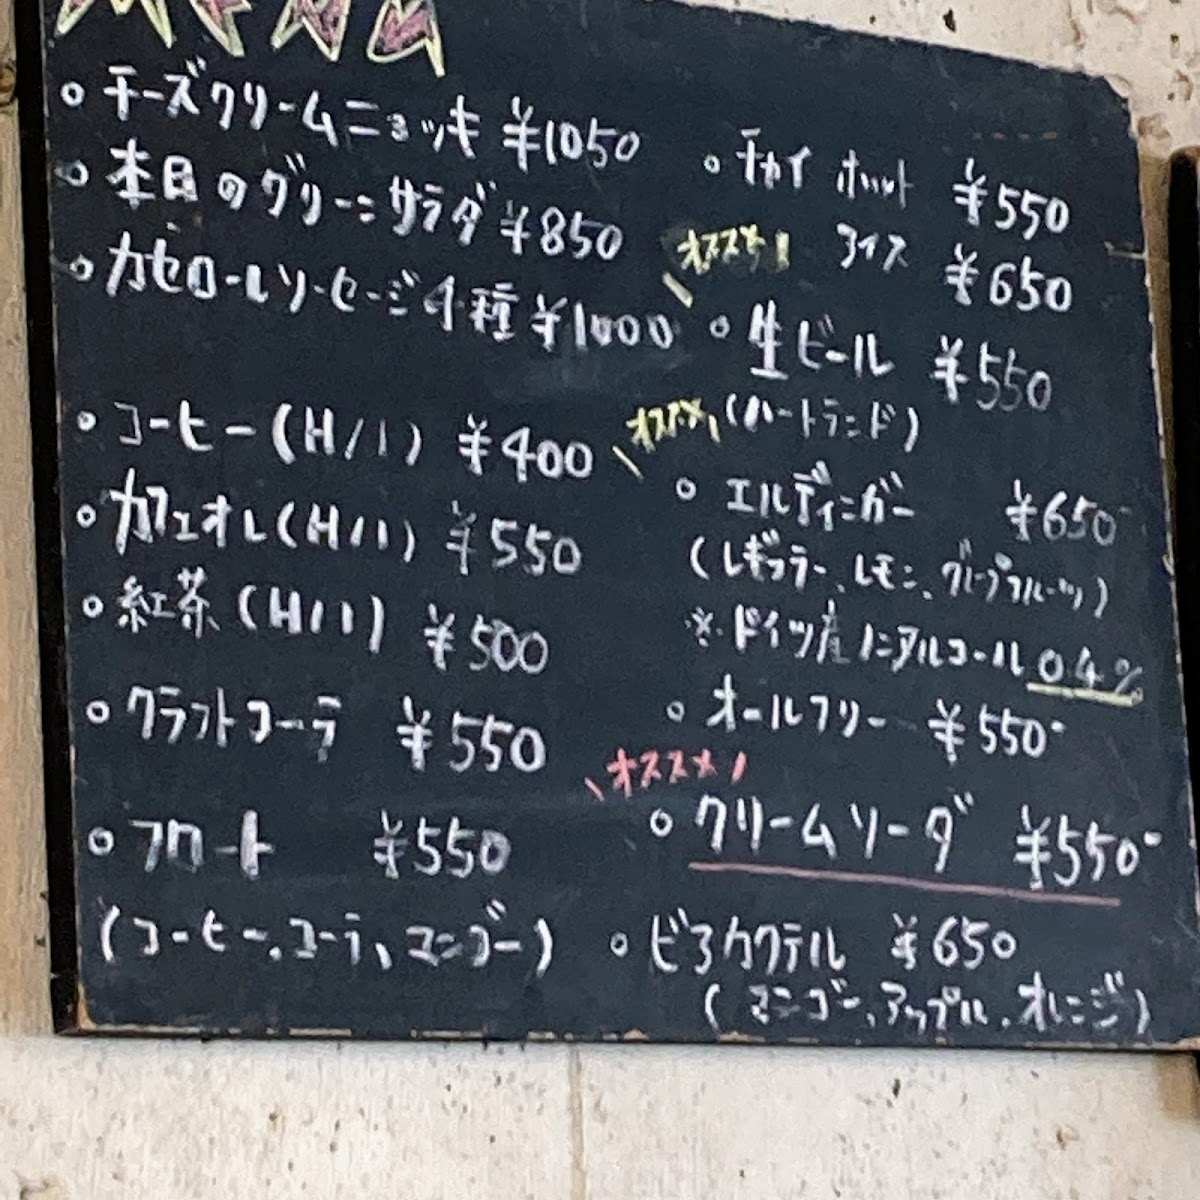 MENU
○ チーズクリームニョッキ ¥1050
○ 本日のグリーンサラダ ¥850
○ カセロールソーセージ4種 ¥1000
○ コーヒー(H/I) ¥400
○ カフェオレ(H/I) ¥550
○ 紅茶(H/I) ¥500
○ クラフトコーラ ¥550
○ フロート ¥550
(コーヒー、コーラ、マンゴー)
○ チャイ ホット ¥550
アイス ¥650
\オススメ!
○ 生ビール ¥550
(ハートランド)
\オススメ!
○ エルディンガー ¥650-
(レギュラー、レモン、グレープフルーツ)
※ ドイツ産ノンアルコール 0.4%
○ オールフリー ¥550-
\オススメ/
○ クリームソーダ ¥550-
○ ビアカクテル ¥650
(マンゴー、アップル、オレンジ)